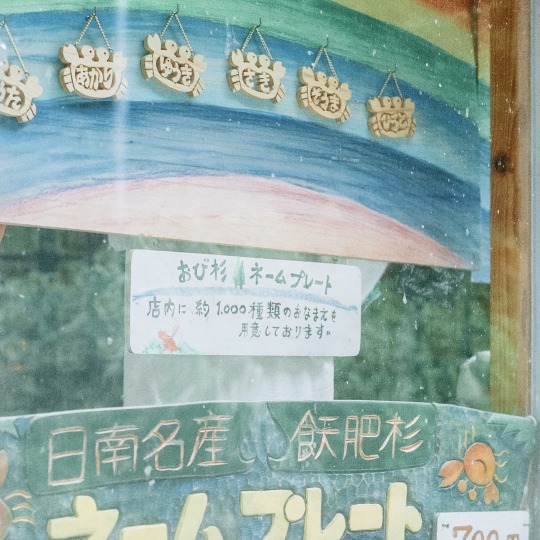 あかり
ゆうき
さき
ひろと
おび杉 ネームプレート
店内に 約 1.000種類のおなまえを
用意しております。
日南名産 飫肥杉
ネームプレート
700円